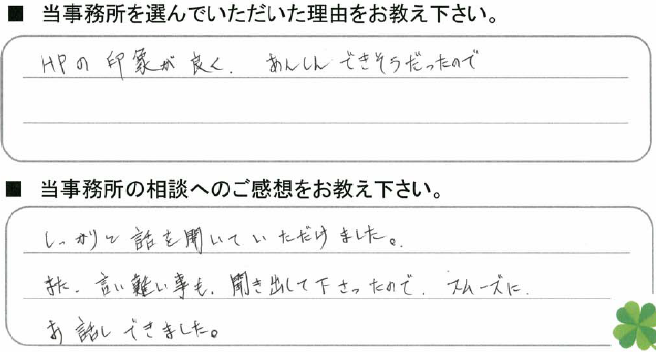 ■ 当事務所を選んでいただいた理由をお教え下さい。
HPの印象が良く、あんしんできそうだったので
■ 当事務所の相談へのご感想をお教え下さい。
しっかりと話を聞いていただけました。
また、言い難い事も、聞き出して下さったので、スムーズに、
お話しできました。